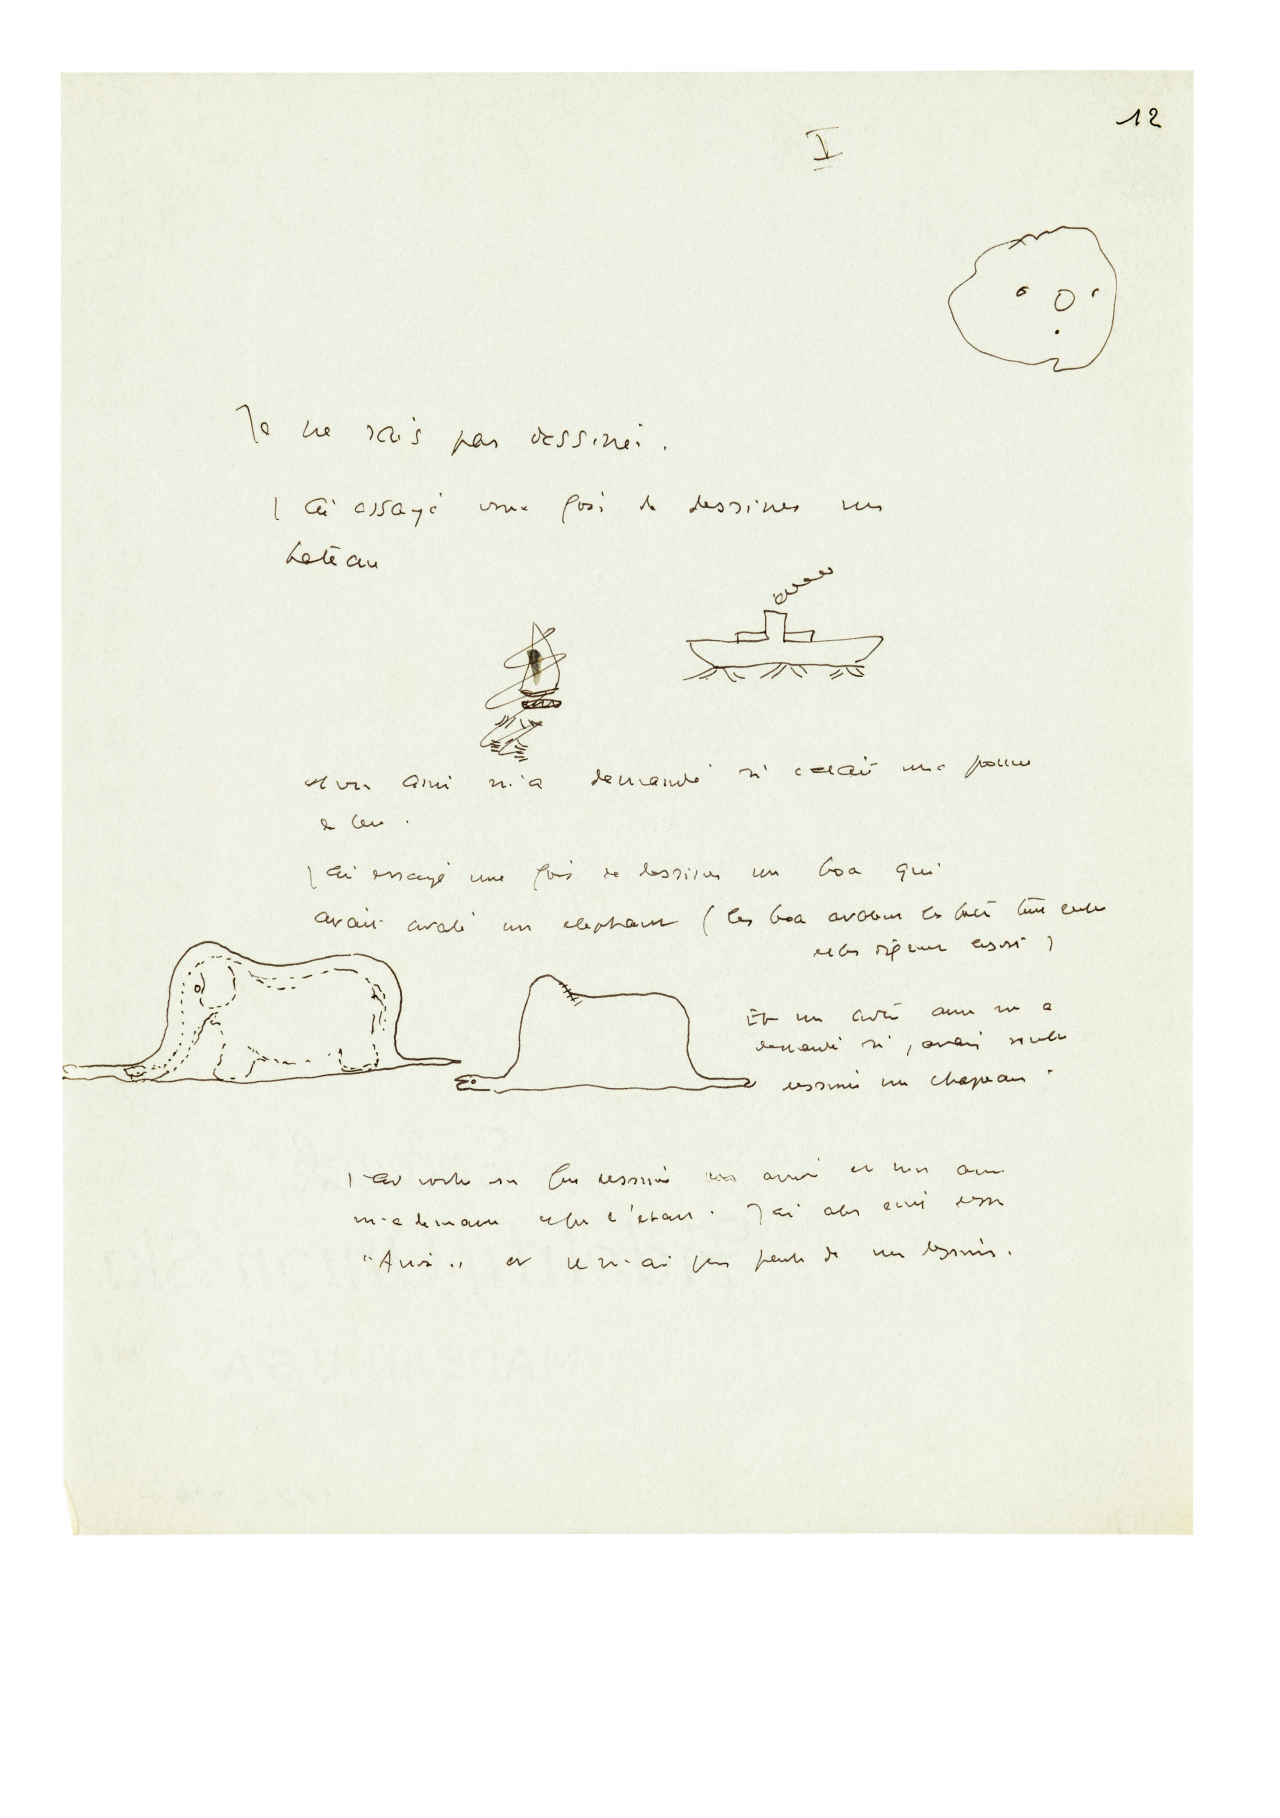 12
I
Je ne sais pas dessiner.
J'ai essayé une fois de dessiner un
bateau
et un ami m'a demandé si c'était une pomme
de terre.
J'ai essayé une fois de dessiner un boa qui
avait avalé un elephant (les boa avalent les
et un autre ami m'a
demandé si j'avais voulu
dessiner un chapeau.
et un ami
m'a demandé ce que c'était. J'ai alors écrit
"Ami" et je n'ai plus parlé de mes dessins.